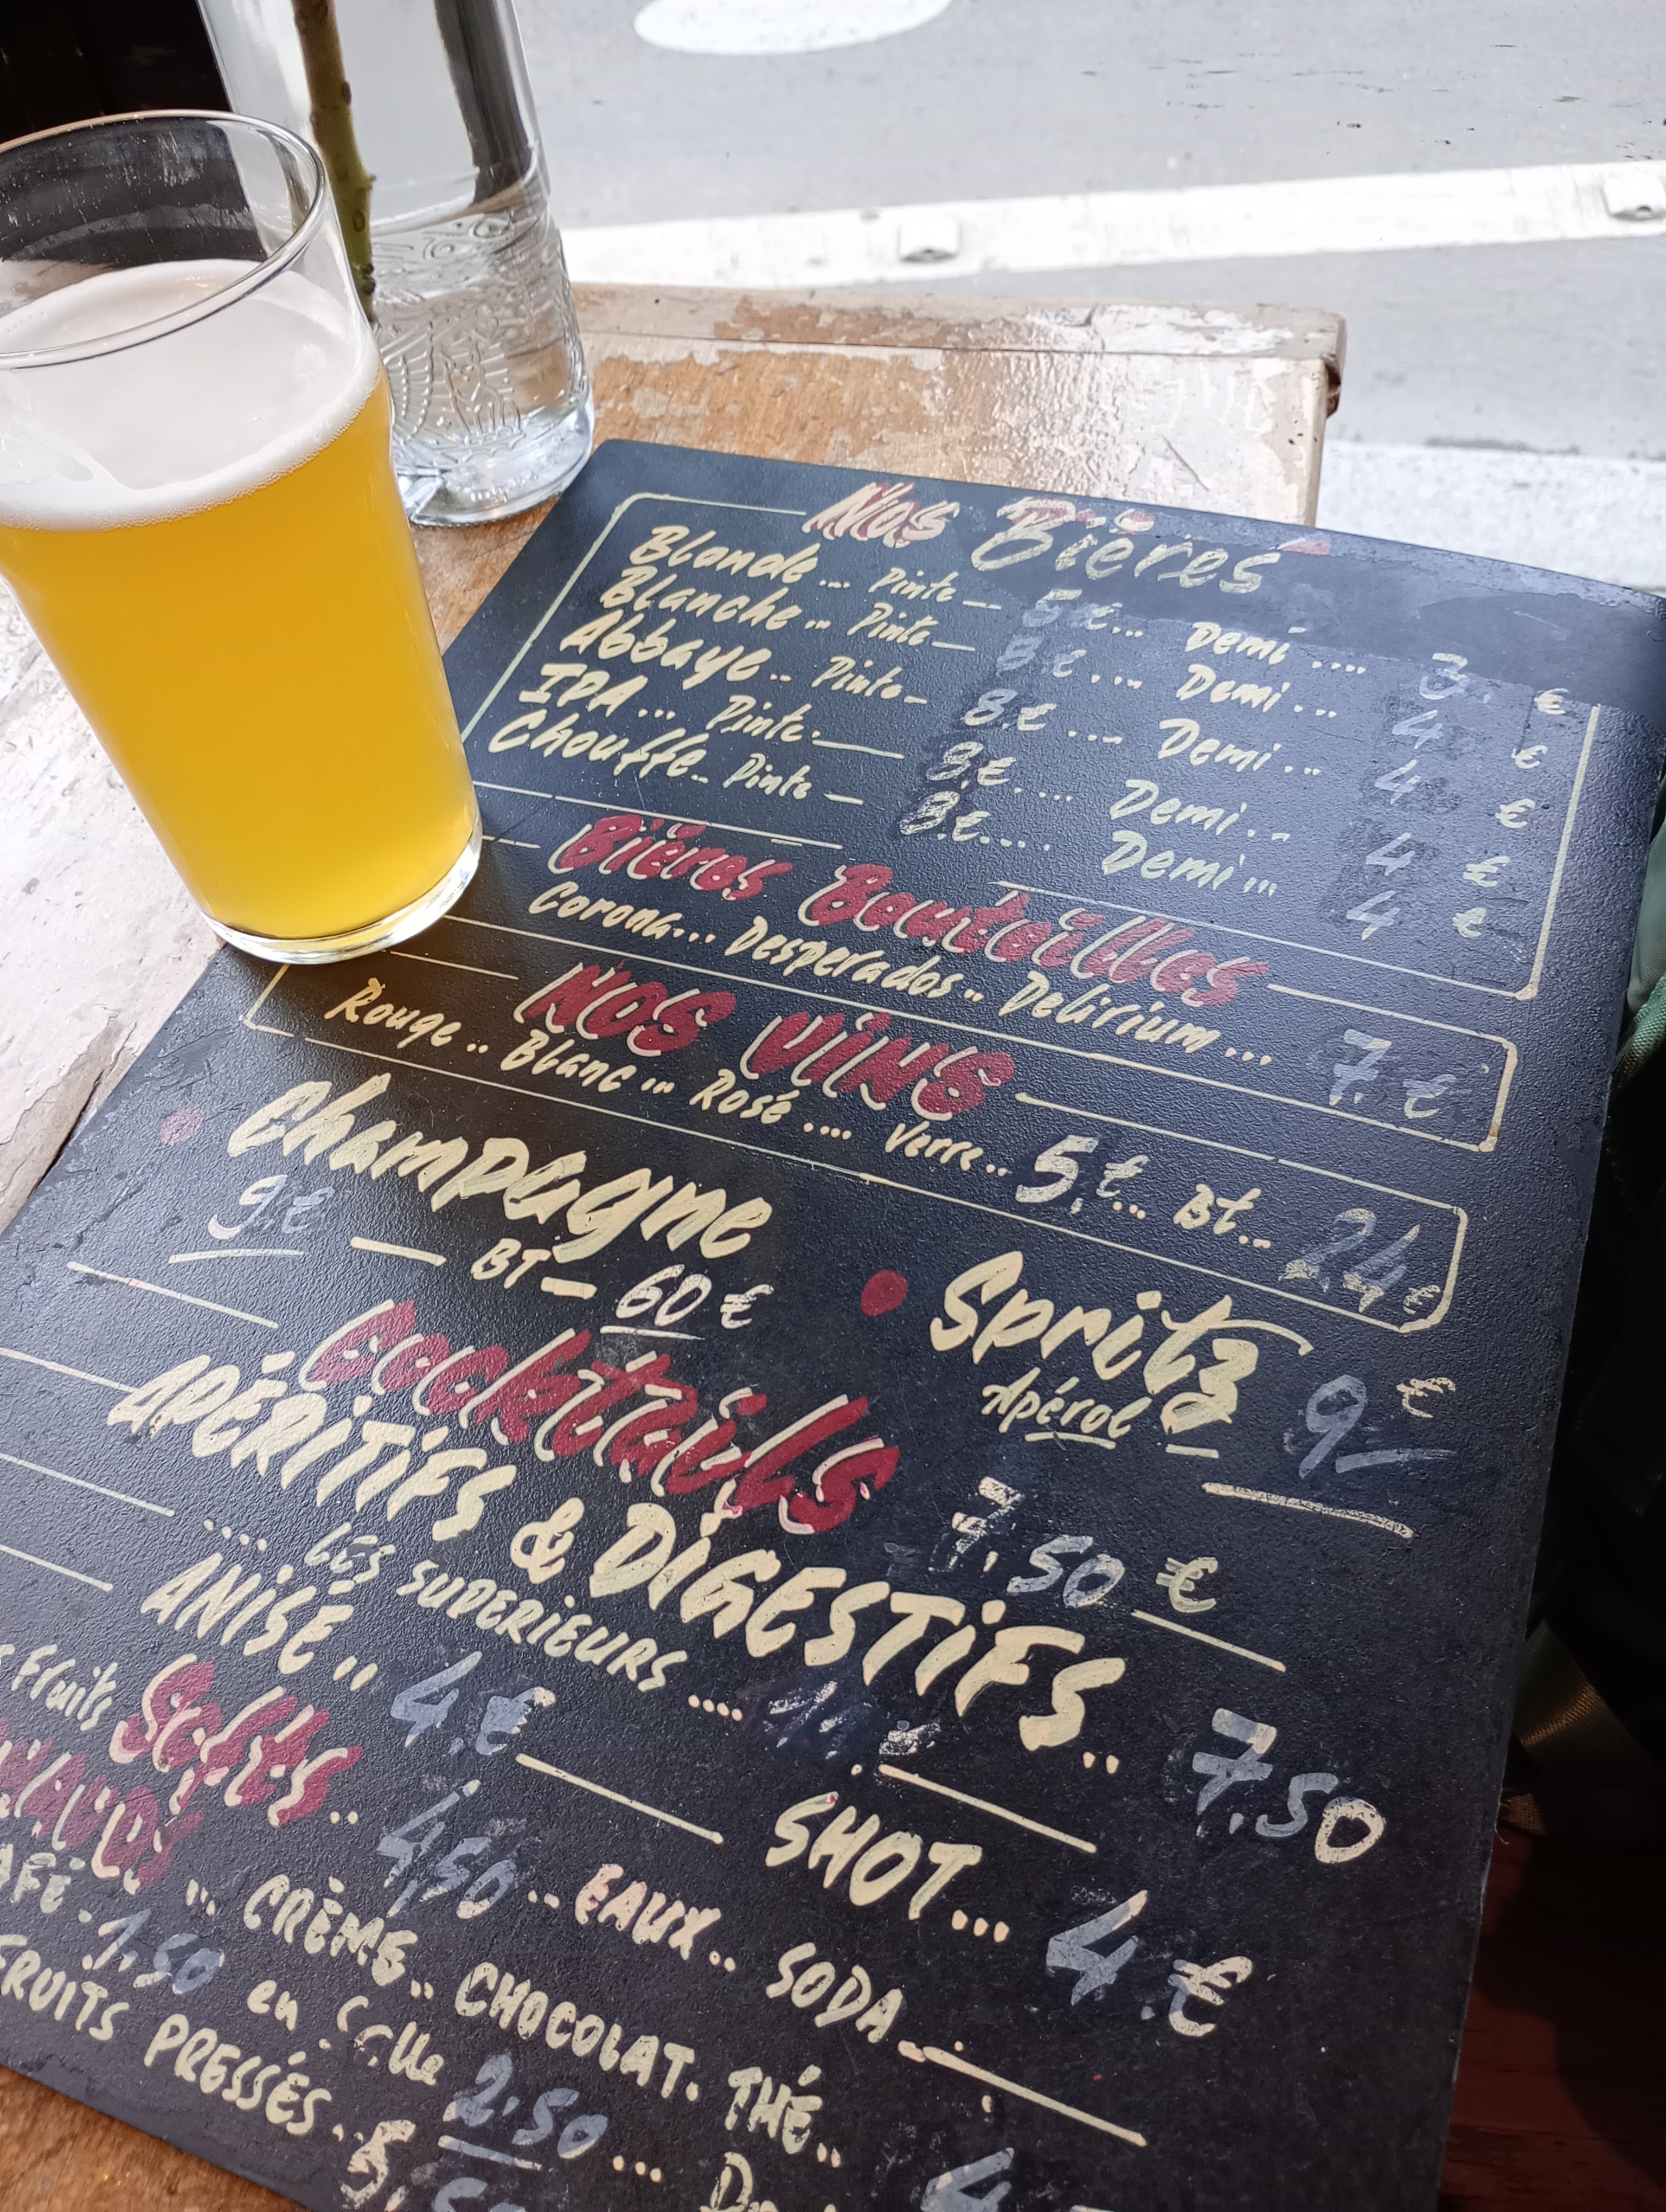 Nos Bières
Blonde ... Pinte — 5 € ... Demi .... 3. €
Blanche .. Pinte — 8 € .... Demi ... 4 €
Abbaye .. Pinte — 8 € .... Demi ... 4 €
IPA ... Pinte. — 8 € .... Demi ... 4 €
Chouffe .. Pinte — 8 € ..... Demi ... 4 €
Bières Bouteilles
Corona... Desperados .. Delirium ... 7. €
NOS VINS
Rouge .. Blanc ... Rosé .... Verre .. 5, € ... Bt .. 24 €
Champagne
9. € — BT — 60 €
Spritz
Apérol — 9 €
Cocktails 7,50 €
APÉRITIFS & DIGESTIFS .. 7,50
.... LES SUPERIEURS ....
ANISÉ .. 4. € — SHOT ... 4. €
Fruits Softs .. 4,50 .. EAUX .. SODA —
... CRÈME .. CHOCOLAT. THÉ .. 4
1,50 en Salle 2.50 ...
FRUITS PRESSÉS .. 5,